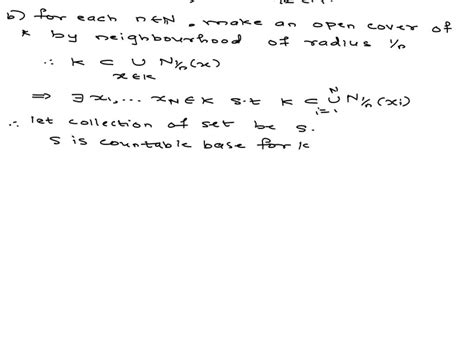 b) for each n∈N, make an open cover of
k by neighbourhood of radius 1/n
∴ k ⊂ ∪ N1/n(x)
x∈k
⇒ ∃ x1, ... xN ∈ k s.t k ⊂ N∪i=1 N1/n(xi)
∴ let collection of set be s.
s is countable base for k